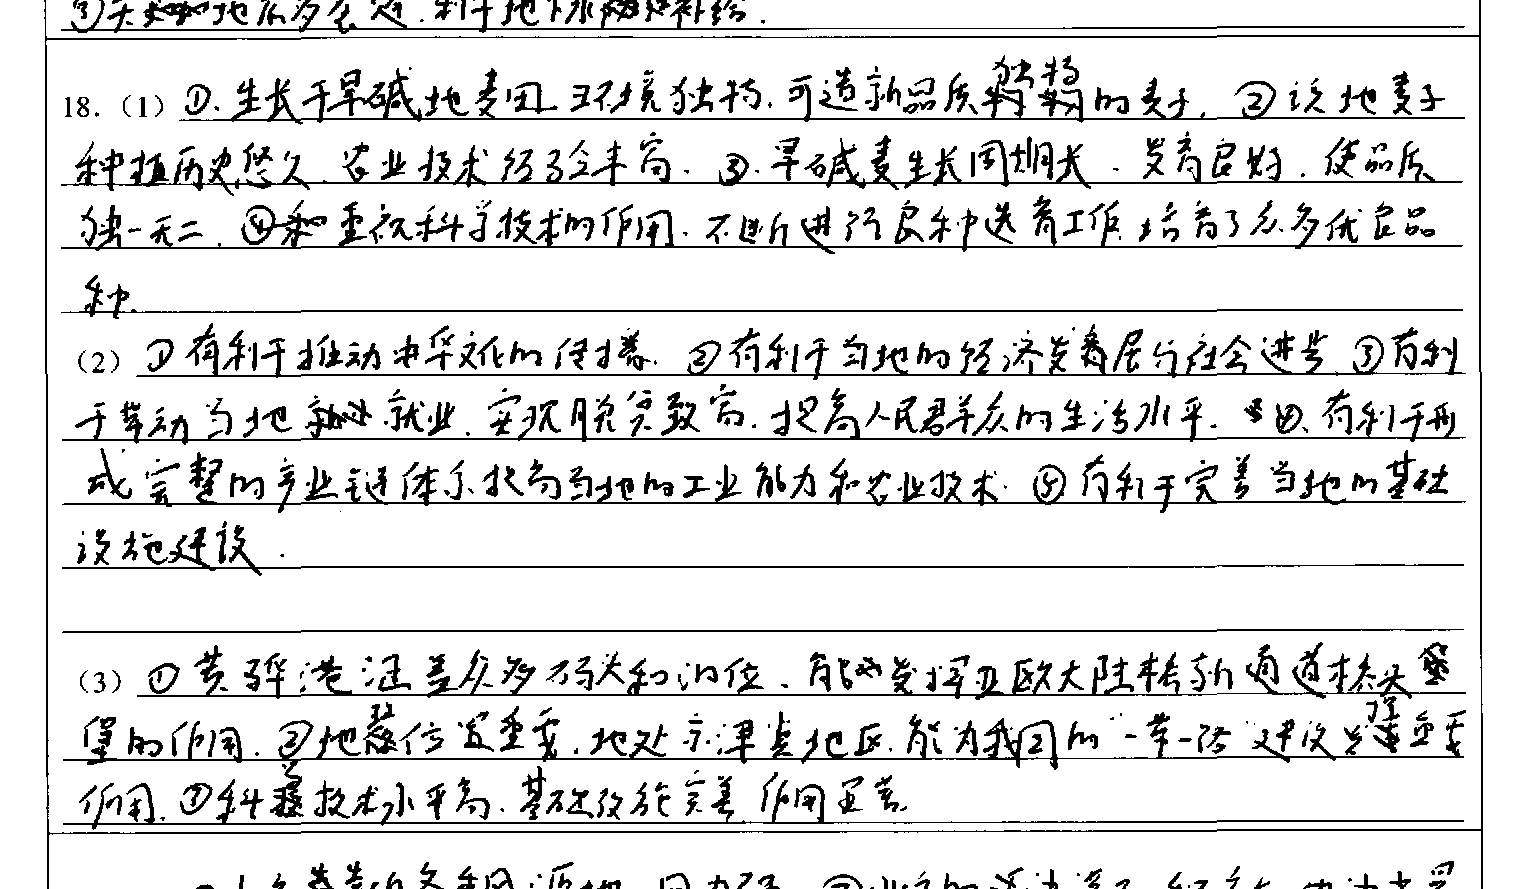 18.（1）①.生长于旱碱地麦田 环境独特.可造新品质独特的麦子. ②该地麦子
种植历史悠久.农业技术经验丰富. ③.旱碱麦生长周期长.发育良好.使品质
独一无二.④重视科学技术的作用.不断进行良种选育工作.培育了众多优良品
种.
（2）①有利于推动中华文化的传播.②有利于当地的经济发展与社会进步.③有利
于带动当地就业.实现脱贫致富.提高人民群众的生活水平.④.有利于形
成完整的产业链体系.提高当地的工业能力和农业技术.⑤有利于完善当地的基础
设施建设.
（3）①黄骅港涵盖众多码头和泊位.能发挥亚欧大陆桥新通道桥头堡
堡的作用.②地理位置重要.地处京津冀地区.能为我国的"一带一路"建设发挥重要
作用.③科学技术水平高.基础设施完善.作用显著.